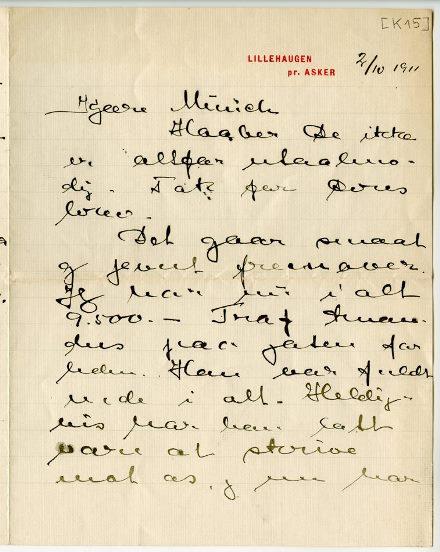 [K15]
LILLEHAUGEN
pr. ASKER
2/10 1911
Kjære Munch
Haaber De ikke
er altfor utaalmo-
dig. Tak for Deres
brev.
Det gaar smaat
og jevnt fremover.
Jeg har nu i alt
9.500.- Traf Aman-
dus paa gaten for
leden. Han var fuldt
inde i alt. Heldig-
vis har han latt
være at skrive
mot os, og nu har